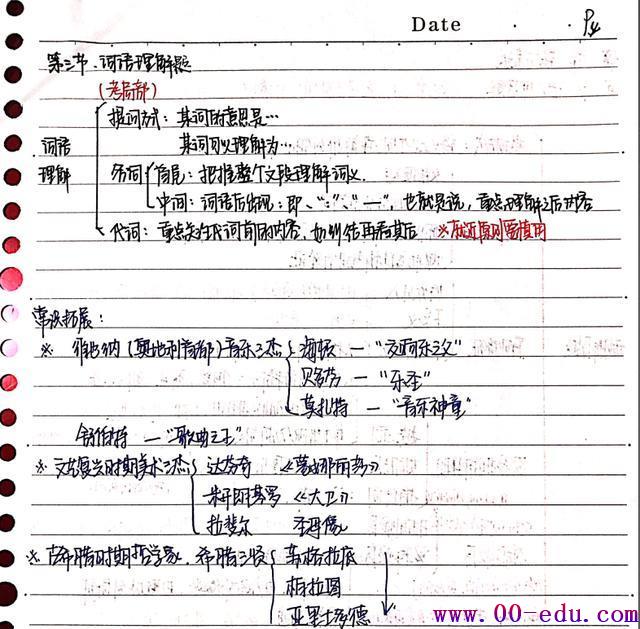 Date
P4
第三节、词语理解题
(考局部)
提问方式：某词的意思是…
某词可以理解为…
词语
理解
名词
首尾：把握整个文段理解词义.
中词：词语后出现：即、“：”、“—”，也就是说，重点理解之后内容
代词：重点关注代词前的内容，如别信再看其后 ※就近原则要慎用
常识拓展：
※ 维也纳（奥地利首都）音乐三杰 海顿 — “交响乐之父”
贝多芬 — “乐圣”
莫扎特 — “音乐神童”
舒伯特 — “歌曲之王”
※ 文艺复兴时期美术三杰 达芬奇 《蒙娜丽莎》
米开朗基罗 《大卫》
拉斐尔 圣母像
※ 古希腊时期哲学家、希腊三贤 苏格拉底
柏拉图
亚里士多德
www.00-edu.com